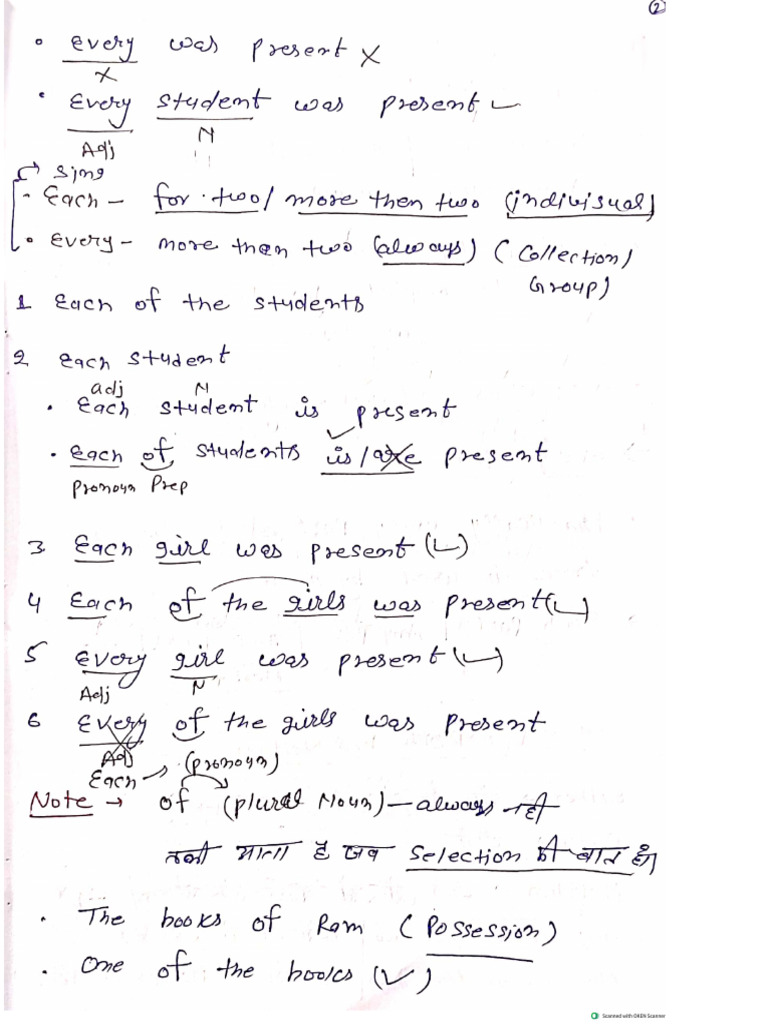 2
• Every was present ×
×
• Every student was present ✓
Adj N
↱ sing
• Each - for two/ more then two (indivisual)
• Every - more than two (always) (Collection)
Group)
1 Each of the students
2 Each student
adj N
• Each student is present
✓
• Each of students is/are present
Pronoun Prep
3 Each girl was present (✓)
4 Each of the girls was present (✓)
5 Every girl was present (✓)
Adj N
6 Every of the girls was present
Adj
Each → (pronoun)
Note → of (plural Noun) - always नहीं
तभी आता है जब selection की बात हो।
• The books of Ram (Possession)
• One of the books (✓)
Scanned with OKEN Scanner